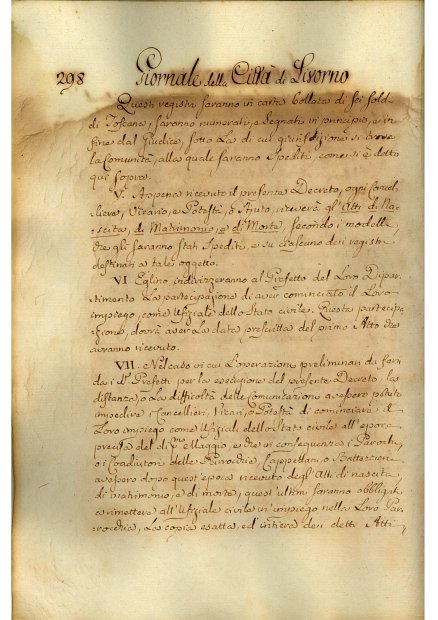 298 Giornale della Città di Livorno
Questi registri saranno in carta bollata di sei soldi
di Toscana, saranno numerati, e segnati in principio, e in
fine dal Giudice, sotto la di cui giurisdizione si trova
la Comunità, alla quale saranno spediti, come si è detto
qui sopra.
V. Appena ricevuto il presente Decreto, ogni Cancel
liere, Vicario, e Potestà, o Ajuto, riceverà gl'Atti di Na-
scita, di Matrimonio e di Morte, secondo i modelli,
che gli saranno stati spediti, e su ciascuno dei registri
destinati a tale oggetto.
VI Eglino, indirizzeranno al Prefetto del Loro Dipar-
timento la partecipazione di aver cominciato il Loro
impiego, come Ufiziale dello Stato civile. Questa partecipa
zione, dovrà aver la data prescritta del primo Atto che
avranno ricevuto.
VII. Nel caso in cui l'operazioni preliminari da farsi
da i Prefetti per la esecuzione del presente Decreto, la
distanza, o la difficoltà delle Comunicazioni avessero potuto
impedire i Cancellieri, Vicari, o Potestà di cominciare il
Loro impiego come Ufiziali dello Stato civile all'epoca
precisa del dì Maggio, e che in conseguenza i Parochi,
o i Coadiutori delle Parrocchie, Cappellani, o Battezzieri
avessero dopo quest'epoca ricevuto degl'Atti di nascita,
di matrimonio, e di morte, quest'ultimi saranno obbligati
a rimettere all'Ufiziale civile in impiego nella Loro Par-
rocchia, la copia esatta, ed intiera dei detti Atti,